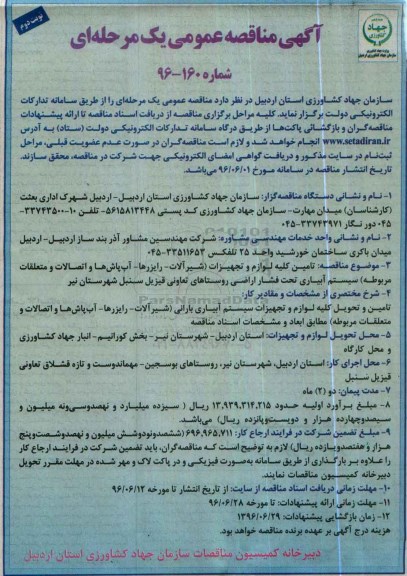 نوبت دوم
آگهی مناقصه عمومی یک مرحله‌ای
شماره ۱۶۰-۹۶
سازمان جهاد کشاورزی استان اردبیل در نظر دارد مناقصه عمومی یک مرحله‌ای را از طریق سامانه تدارکات
الکترونیکی دولت برگزار نماید. کلیه مراحل برگزاری مناقصه از دریافت اسناد مناقصه تا ارائه پیشنهادات
مناقصه‌گران و بازگشائی پاکت‌ها از طریق درگاه سامانه تدارکات الکترونیکی دولت (ستاد) به آدرس
www.setadiran.ir انجام خواهد شد و لازم است مناقصه‌گران در صورت عدم عضویت قبلی، مراحل
ثبت‌نام در سایت مذکور و دریافت گواهی امضای الکترونیکی جهت شرکت در مناقصه، محقق سازند.
تاریخ انتشار مناقصه در سامانه مورخ ۹۶/۰۶/۰۱ می‌باشد.
۱- نام و نشانی دستگاه مناقصه‌گزار: سازمان جهاد کشاورزی استان اردبیل- اردبیل شهرک اداری بعثت
(کارشناسان) میدان مهارت- سازمان جهاد کشاورزی کد پستی ۵۶۱۵۸۱۳۴۴۸- تلفن ۱۰-۳۳۷۴۳۵۰۰-
۰۴۵ دورنگار ۳۳۷۴۳۹۷۱-۰۴۵
۲- نام و نشانی واحد خدمات مهندسی مشاوره: شرکت مهندسین مشاور آذر بند ساز اردبیل- اردبیل
میدان باکری ساختمان خورشید واحد ۲۵ تلفکس ۳۳۵۱۱۶۵۳-۰۴۵
۳- موضوع مناقصه: تامین کلیه لوازم و تجهیزات (شیرآلات- رایزرها- آب‌پاش‌ها و اتصالات و متعلقات
مربوطه) سیستم آبیاری تحت فشار اراضی روستاهای تعاونی قیزیل سنبل شهرستان نیر
۴- شرح مختصری از مشخصات و مقادیر کار:
تامین و تحویل کلیه لوازم و تجهیزات سیستم آبیاری بارانی (شیرآلات- رایزرها- آب‌پاش‌ها و اتصالات و
متعلقات مربوطه) مطابق ابعاد و مشخصات اسناد مناقصه
۵- محل تحویل لوازم و تجهیزات: استان اردبیل- شهرستان نیر- بخش کورائیم- انبار جهاد کشاورزی
و محل کارگاه
۶- محل اجرای کار: استان اردبیل، شهرستان نیر، روستاهای یوسجین- مهماندوست و تازه قشلاق تعاونی
قیزیل سنبل
۷- مدت پیمان: دو (۲) ماه
۸- مبلغ برآورد اولیه حدود ۱۳,۹۳۹,۳۱۴,۲۱۵ ریال ( سیزده میلیارد و نهصدوسی‌ونه میلیون و
سیصدوچهارده هزار و دویست‌وپانزده ریال) می‌باشد.
۹- مبلغ تضمین شرکت در فرایند ارجاع کار: ۶۹۶,۹۶۵,۷۱۱ (ششصدونودوشش میلیون و نهصدوشصت‌وپنج
هزار و هفتصدویازده ریال) لازم به توضیح است که مناقصه‌گران، باید تضمین شرکت در فرایند ارجاع کار
را علاوه بر بارگذاری از طریق سامانه به‌صورت فیزیکی و در پاکت لاک و مهر شده در مهلت مقرر تحویل
دبیرخانه کمیسیون مناقصات نمایند.
۱۰- مهلت زمانی دریافت اسناد مناقصه از سایت: از تاریخ انتشار تا مورخه ۹۶/۰۶/۱۲
۱۱- مهلت زمانی ارائه پیشنهادات: تا مورخه ۹۶/۰۶/۲۸
۱۲- زمان بازگشایی پیشنهادات: ۱۳۹۶/۰۶/۲۹
هزینه درج آگهی بر عهده برنده مناقصه خواهد بود.
دبیرخانه کمیسیون مناقصات سازمان جهاد کشاورزی استان اردبیل